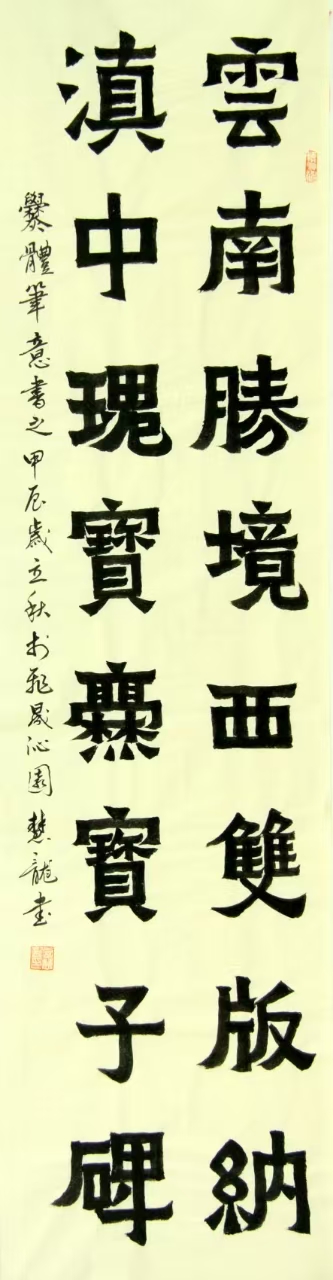 雲南勝境西雙版納
滇中瑰寶爨寶子碑
爨體筆意書之甲辰歲立秋於飛晟沁園慧龍書